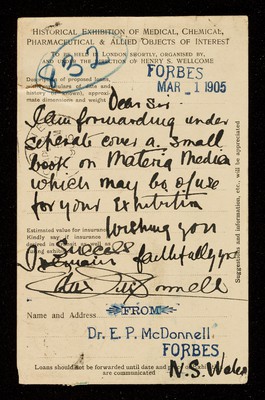 HISTORICAL EXHIBITION OF MEDICAL, CHEMICAL,
PHARMACEUTICAL & ALLIED OBJECTS OF INTEREST
TO BE HELD IN LONDON SHORTLY, ORGANISED BY,
AND UNDER THE DIRECTION OF HENRY S. WELLCOME
432
FORBES
MAR -1 1905
Description of proposed loans,
(with particulars of date and
history if known), approxi-
mate dimensions and weight
Dear Sir
I am forwarding under
seperate cover a small
book on Materia Medica
which may be of use
for your Exhibition
Wishing you
Estimated value for insurance
Kindly say if insurance
desired in transit as well as
during exhibition
Success
I remain faithfully yrs
McDonnell
Name and Address
FROM
Dr. E. P. McDonnell,
FORBES,
N.S. Wales
Loans should not be forwarded until date and place of exhibition
are communicated
Suggestions and information, etc., will be appreciated